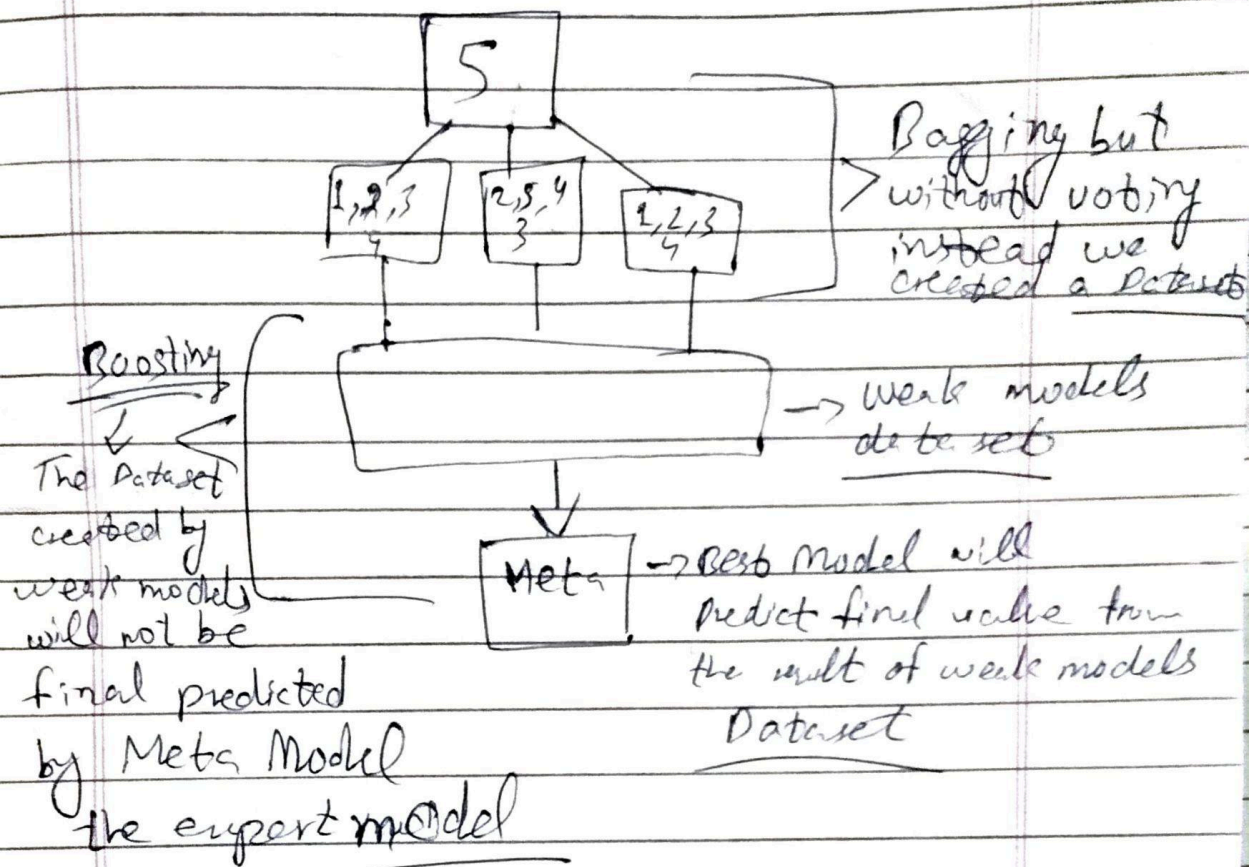 5
1,2,3
4
2,5,4
3
1,2,3
4
Bagging but
without voting
instead we
created a Dataset
Boosting
The Dataset
created by
weak models
will not be
final predicted
by Meta Model
the expert model
→ weak models
dataset
Meta
→ Best Model will
Predict final value from
the result of weak models
Dataset